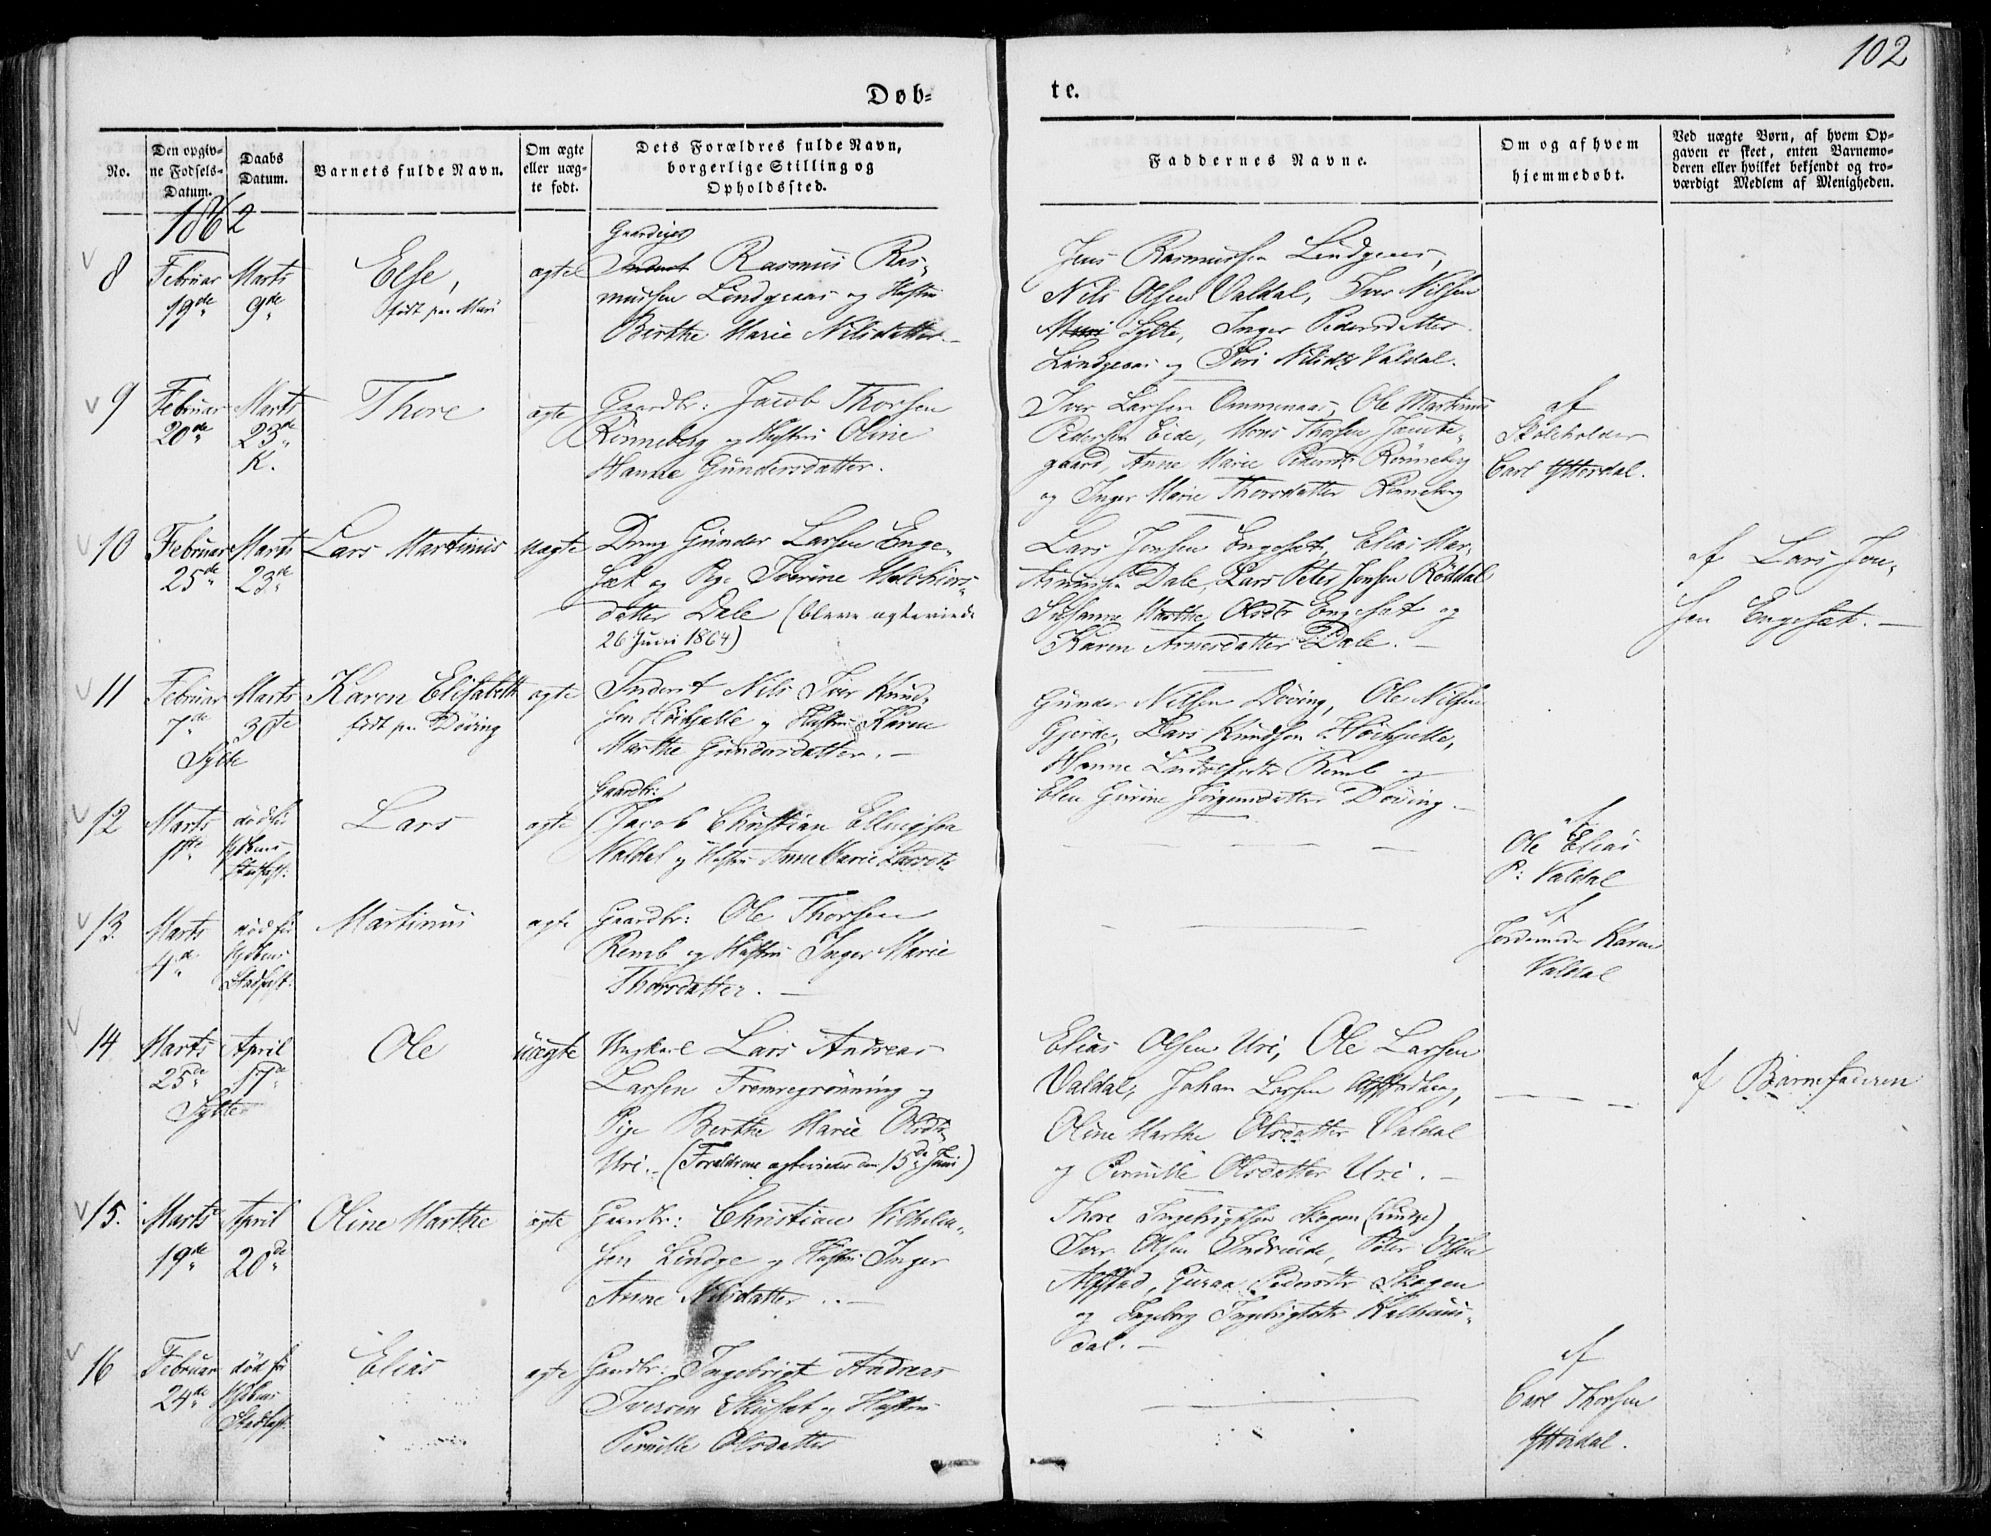 102
Døb-
te.
No.
Den opgiv-
ne Fødsels-
Datum.
Daabs
Datum.
Barnets fulde Navn.
Om ægte
eller uæg-
te født.
Dets Forældres fulde Navn,
borgerlige Stilling og
Opholdssted.
Faddernes Navne.
Om og af hvem
hjemmedøbt.
Ved uægte Børn, af hvem Op-
gaven er skeet, enten Barnemo-
deren eller hvilket bekjendt og tro-
værdigt Medlem af Menigheden.
1862
8
Februar
19de
Marts
9de
Else,
født paa Muri
ægte
Gaardeier
Inderst Rasmus Ras-
mussen Lindgeaas og Hustru
Berthe Marie Nilsdatter.
Jens Rasmussen Lindgeaas,
Nils Olsen Valdal, Iver Nilsen
Muri Sylte, Inger Pedersdatter
Lindgeaas og Siri Nilsdtr Valdal.
9
Februar
20de
Marts
23de
K.
Thore
ægte
Gaardbr: Jacob Thorsen
Rønneberg og Hustru Oline
Hanne Gundersdatter.
Iver Larsen Ommenaas, Ole Martinus
Pedersen Eide, Mons Thorsen Jamte-
gaard, Anne Marie Pedersdtr Rønneberg
og Inger Marie Thorsdatter Rønneberg
af
Skoleholder
Carl Ytterdal.
10
Februar
25de
Marts
23de
Lars Martinus
uægte
Dreng Gunder Larsen Enge-
sæt og Pige Iverine Melchiors-
datter Dale (bleve ægteviede
26 Juni 1864)
Lars Jensen Engesæt, Elias Mar-
Dale, Lars Peter Jensen Røddal
Susanne Marthe Olsdtr Engesæt og
Karen Arnesdatter Dale.
af Lars Jen-
sen Engesæt.
11
Februar
7de
Marts
30te
Sylte
Karen Elisabeth
født paa Døving
ægte
Inderst Nils Iver Knud-
sen Høiehjelle og Hustru Karen
Marthe Gundersdatter.
Gunder Nilsen Døving, Ole Nilsen
Gjerde, Lars Knudsen Høiehjelle,
Hanne Remb og
Elen Gurine Jørgensdatter Døving
12
Marts
1ste
død før
Daabens
Stadfæst:
Lars
ægte
Gaardbr:
Jacob Christian Ellingsen
Valdal og Hustru Anne Marie Larsdtr
af
Ole Elias
P: Valdal
13.
Marts
4de
død før
Daabens
Stadfæst:
Martinus
ægte
Gaardbr: Ole Thorsen
Remb og Hustru Inger Marie
Thorsdatter.
af
Jordemoder Karen
Valdal
14
Marts
25de
April
17de
Sylte
Ole
uægte
Ungkarl Lars Andreas
Larsen Fremregrønning og
Pige Berthe Marie Olsdtr
Uri. (Forældrene ægteviedes den 15de Juni)
Elias Olsen Uri, Ole Larsen
Valdal, Johan Larsen
Oline Marthe Olsdatter Valdal
og Pernille Olsdatter Uri.
af Barnefaderen
15.
Marts
19de
April
20de
Oline Marthe
ægte
Gaardbr: Christian Vilhelm-
sen Lindge og Hustru Inger
Anne Nilsdatter.
Thore Ingebrigtsen Skogen (Lindge)
Iver Olsen Indreeide, Peter Olsen
Alstad, Guraa Pedersdtr Skogen
og Ingeborg Ingebrigtsdtr Kalhuus-
dal.
16
Februar
24de
død før
Daabens
Stadfæst.
Elias
ægte
Gaardbr: Ingebrigt Andreas
Iversen Skusæt og Hustru
Pernille Olsdatter
af
Carl Thorsen
Ytterdal.